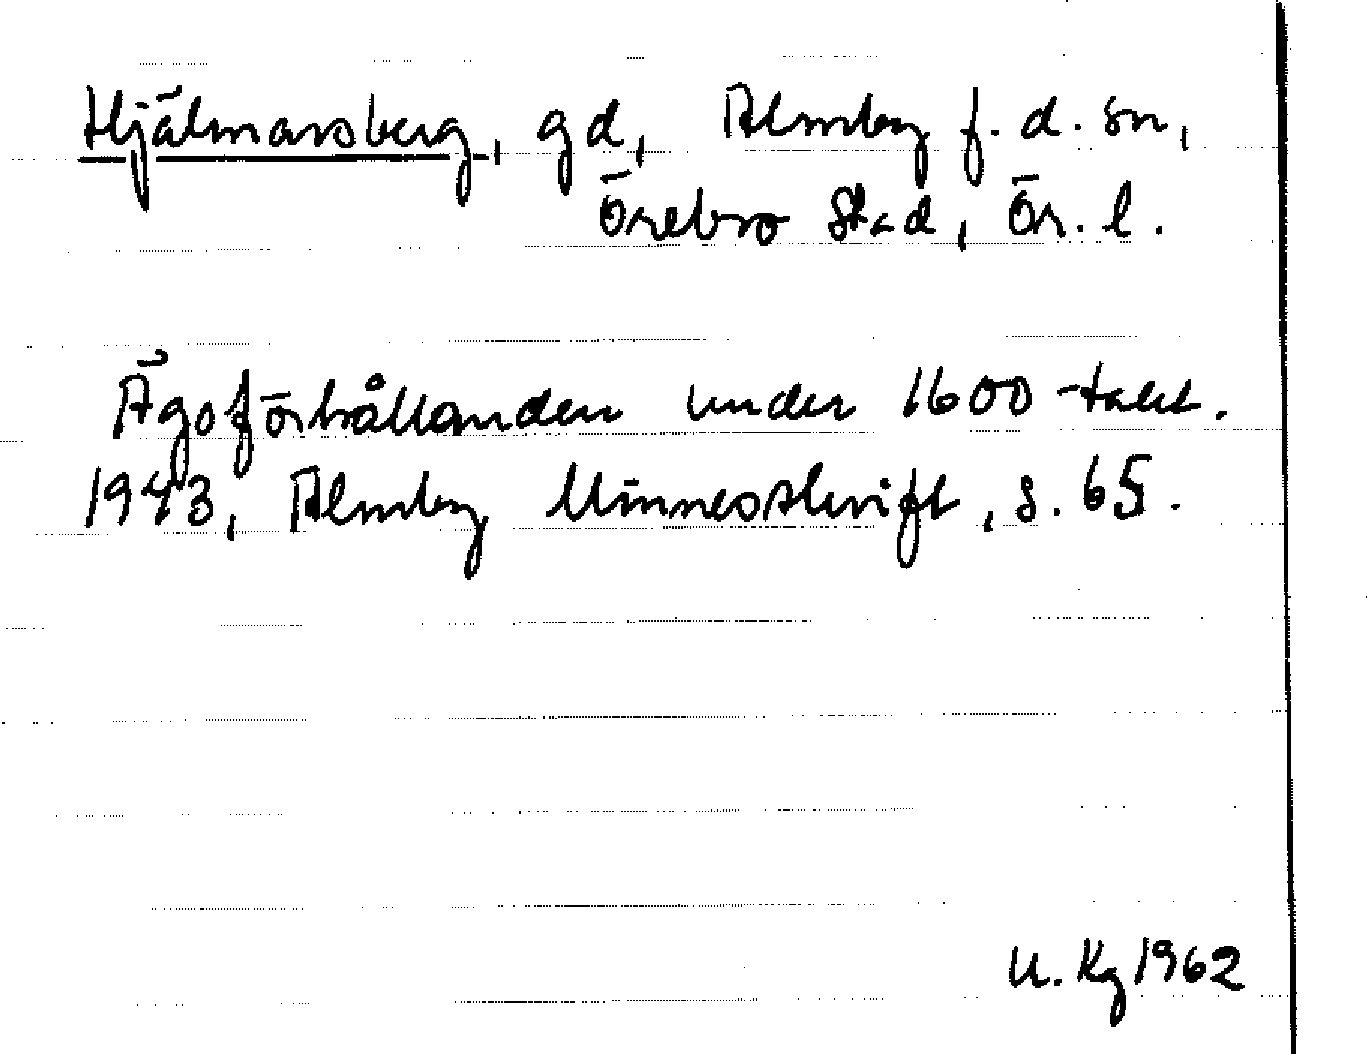 Hjälmarsberg, gd, Almby f.d. sn,
Örebro stad, Ör. l.
Ägoförhållanden under 1600-talet.
1943, Almby Minnesskrift, s. 65.
U. Kg 1962